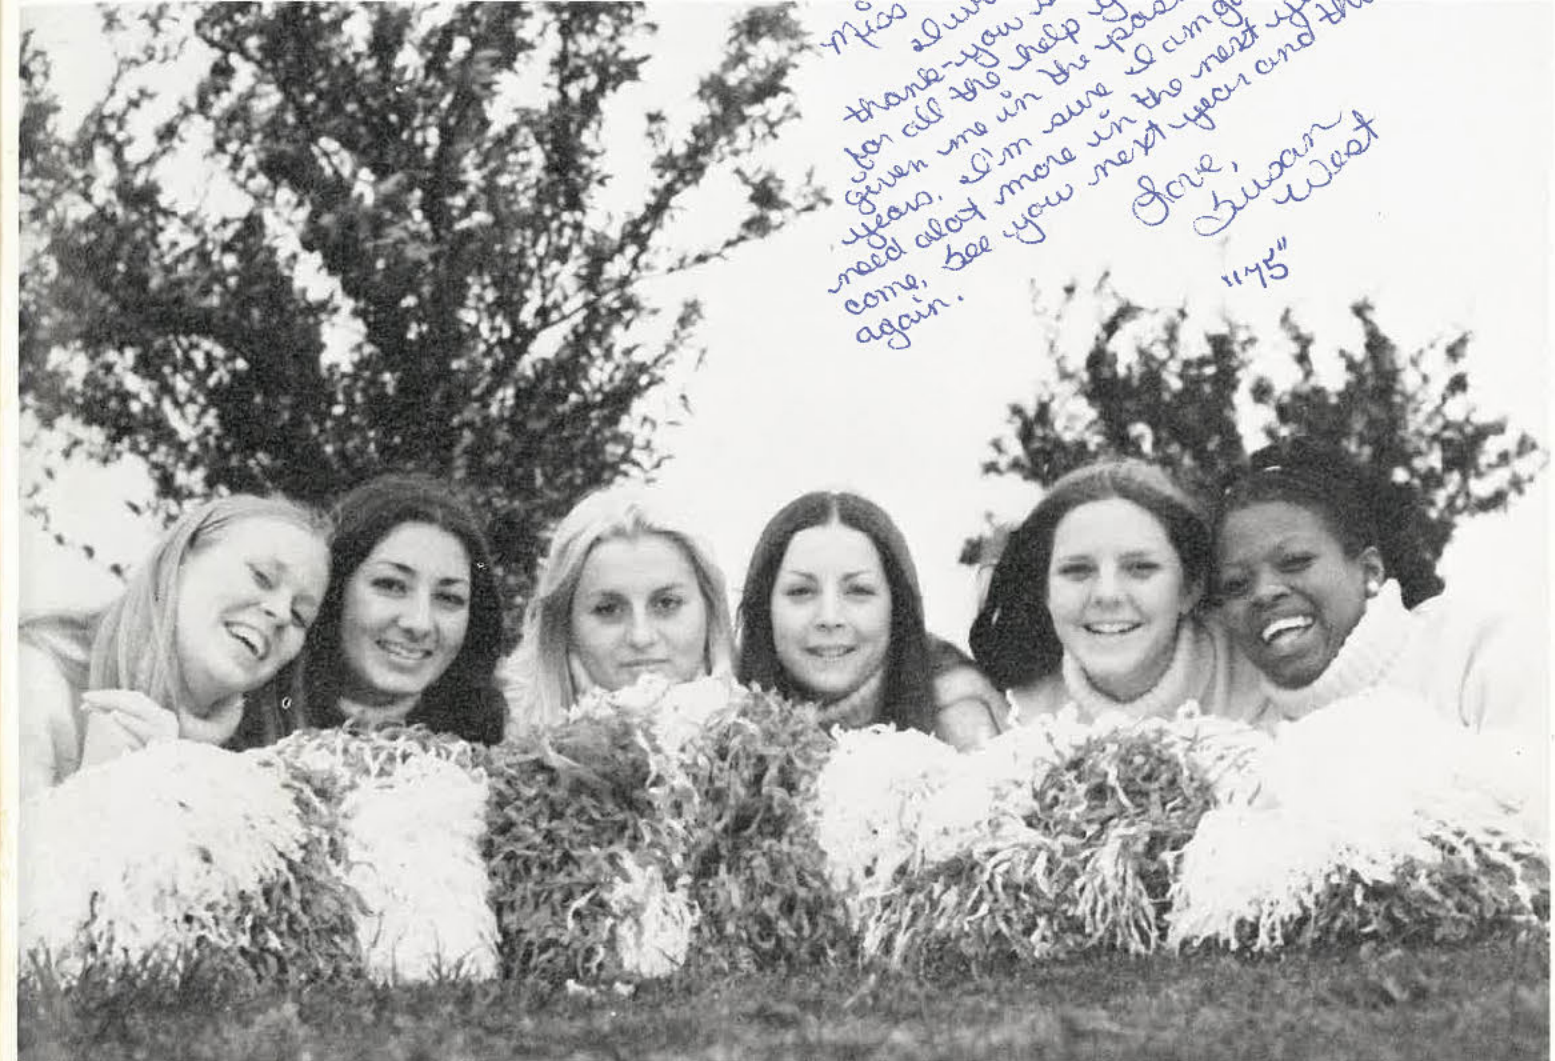 Miss
thank-you
for all the help
given me in the past
years. I'm sure I am
need alot more in the next
come. See you next year and
again.
Love,
Susan
West
"75"